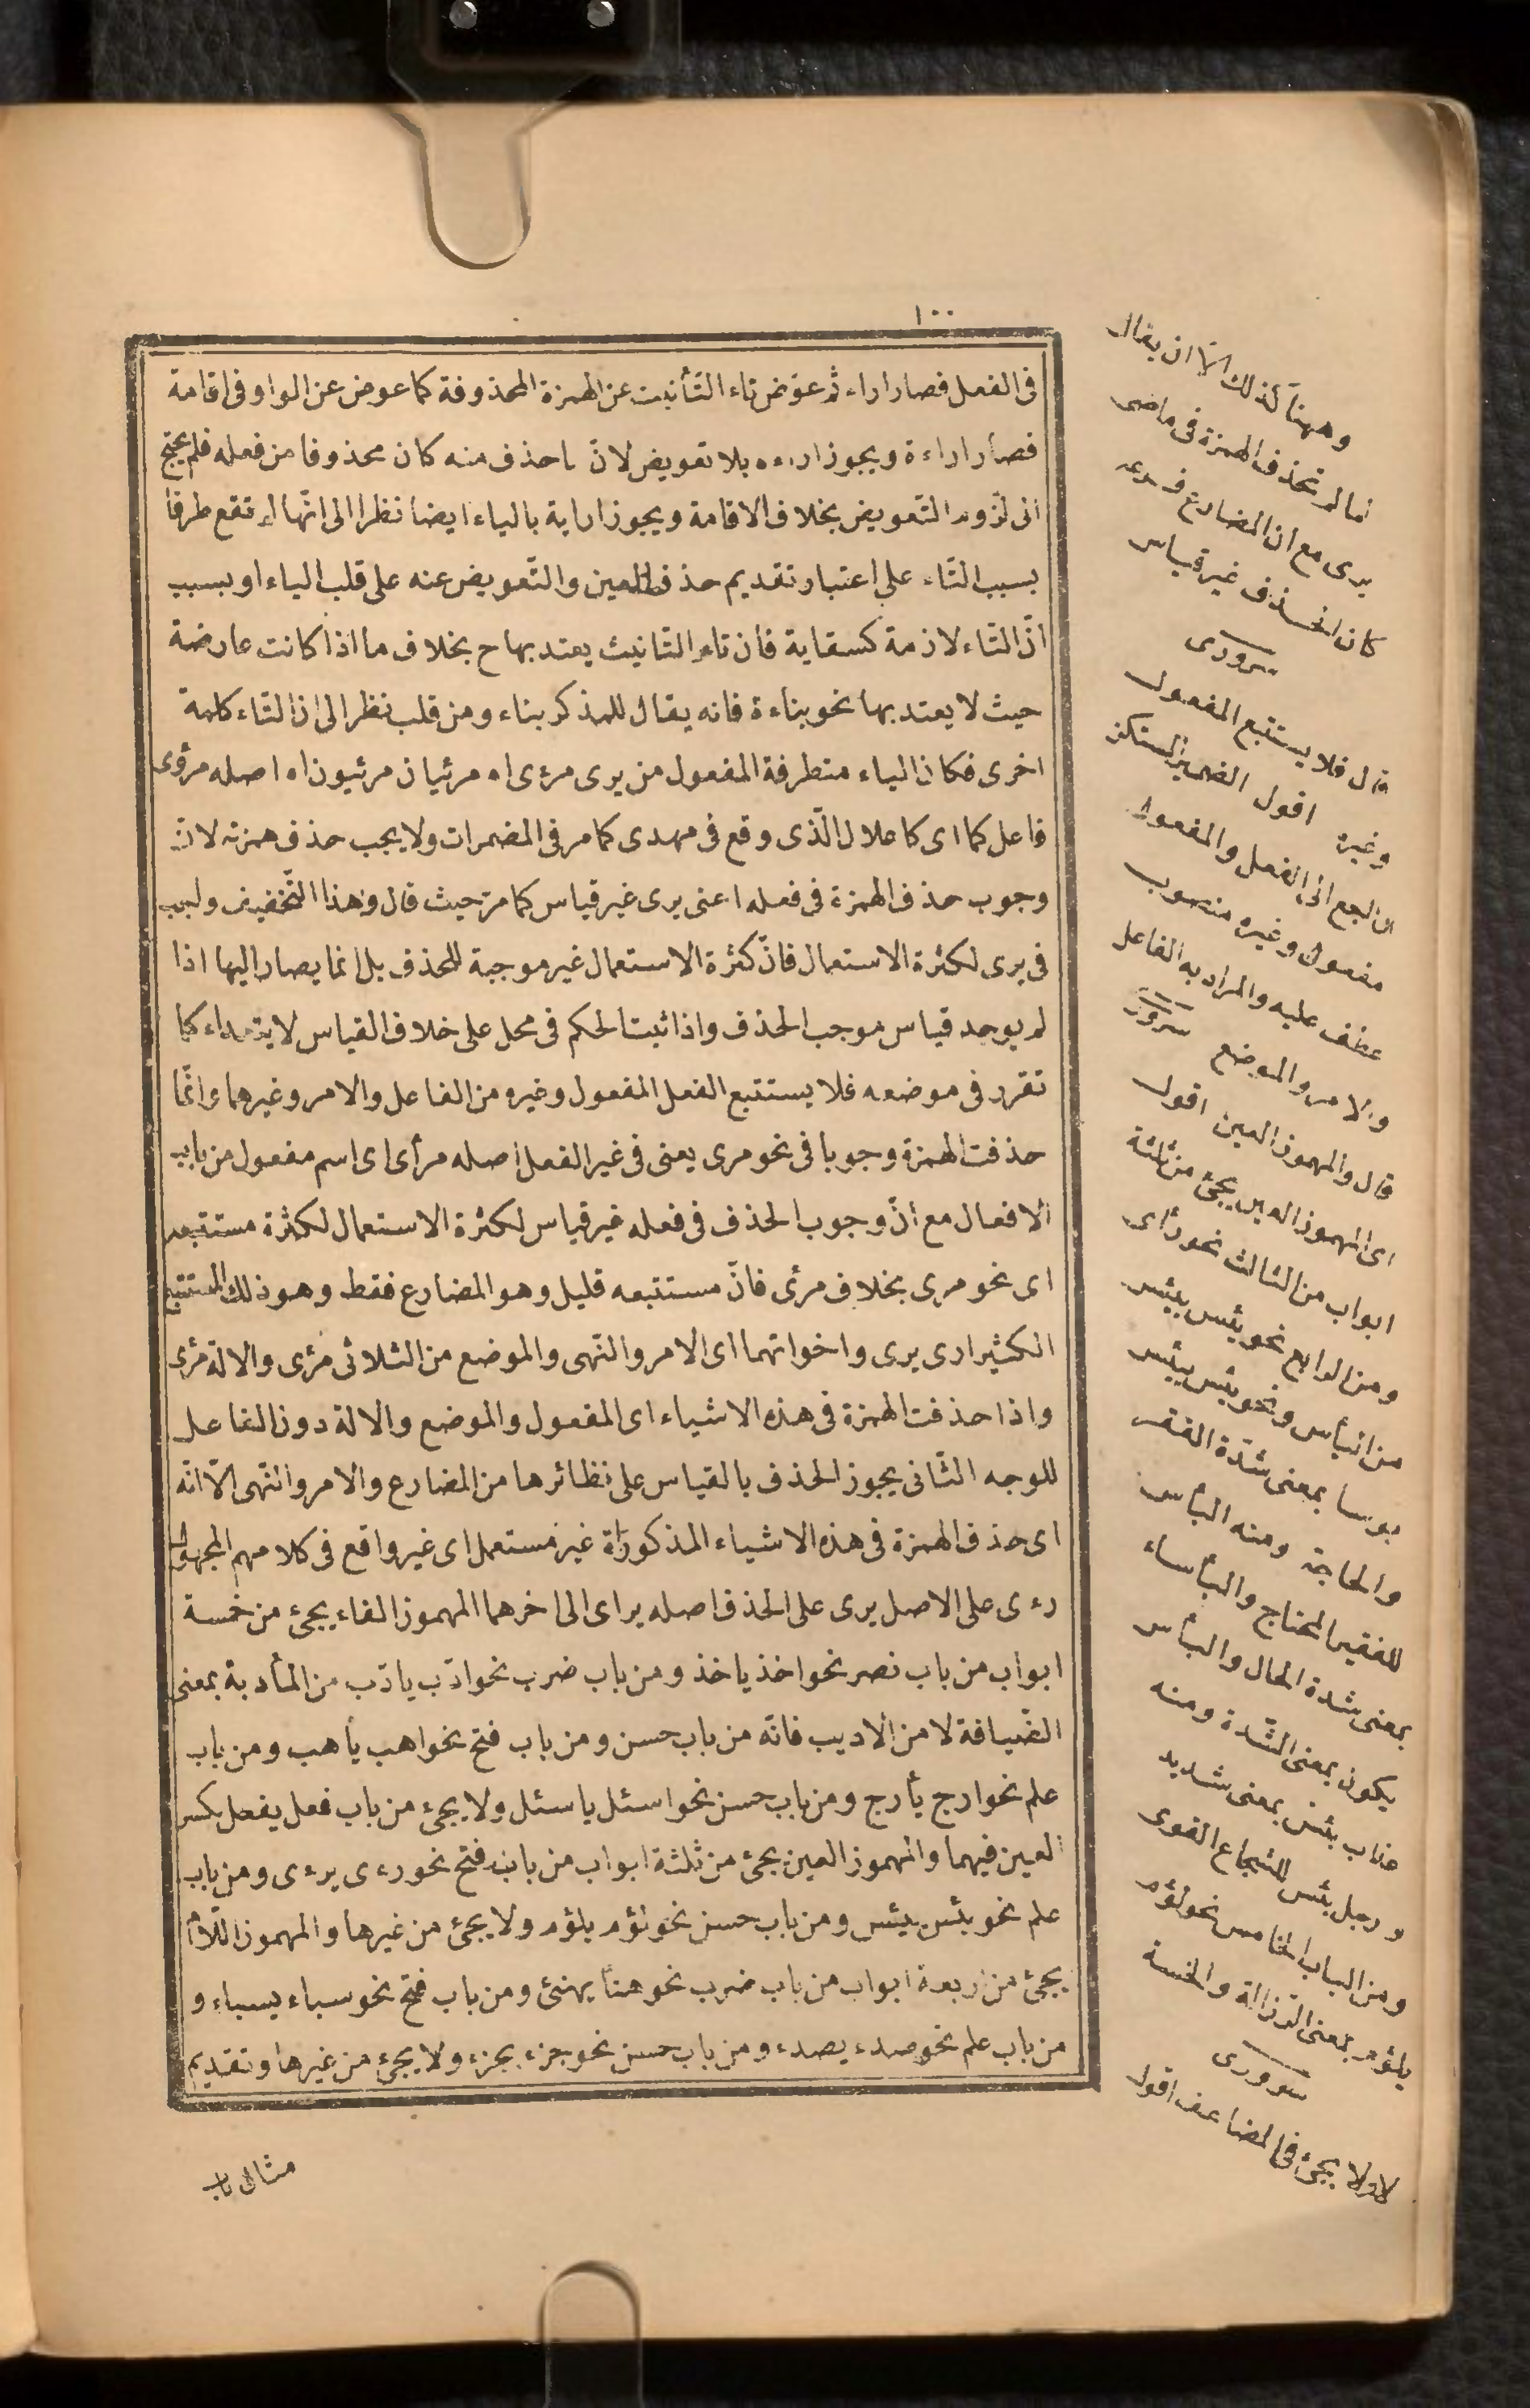 ١٠٠
فى الفعل فصار اراء ثم عوّض تاء التّأنيث عن الهمزة المحذوفة كما عوض عن الواو فى اقامة
فصار اراءة ويجوز اراءه بلا تعويض لانّ ما حذف منه كان محذوفا من فعله فلم يحتج
الى لزوم التّعويض بخلاف الاقامة ويجوز اراية بالياء ايضا نظرا الى انّها لم تقع طرفا
بسبب التّاء على اعتبار تقديم حذف العين والتّعويض عنه على قلب الياء او بسبب
انّ التّاء لازمة كسقاية فان تاء التّانيث يعتد بها ح بخلاف ما اذا كانت عارضة
حيث لا يعتد بها نحو بناءة فانه يقال للمذكر بناء ومن قلب نظر الى ان التّاء كلمة
اخرى فكان الياء متطرفة المفعول من يرى مرءى اه مرئيان مرئيون اه اصله مرؤى
فاعل كما اى كاعلال الّذى وقع فى مهدى كما مر فى المضمرات ولا يجب حذف همزته لانّ
وجوب حذف الهمزة فى فعله اعنى يرى غير قياس كما مرّ حيث قال وهذا التّخفيف واجب
فى يرى لكثرة الاستعمال فانّ كثرة الاستعمال غير موجبة للحذف بل انما يصار اليها اذا
لم يوجد قياس موجب الحذف واذا ثبت الحكم فى محل على خلاف القياس لا يتعداء كما
تقرر فى موضعه فلا يستتبع الفعل المفعول وغيره من الفاعل والامر وغيرهما وانّما
حذفت الهمزة وجوبا فى نحو مرى يعنى فى غير الفعل اصله مرأى اى اسم مفعول من باب
الافعال مع انّ وجوب الحذف فى فعله غير قياس لكثرة الاستعمال لكثرة مستتبعه
اى نحو مرى بخلاف مرئى فانّ مستتبعه قليل وهو المضارع فقط وهو ذلك المستتبع
الكثير ارى يرى واخواتهما اى الامر والنّهى والموضع من الثلاثى مرْى والالة مرْى
واذا حذفت الهمزة فى هذه الاشياء اى المفعول والموضع والالة دون الفاعل
للوجه الثّانى يجوز الحذف بالقياس على نظائرها من المضارع والامر والنّهى الّا انّه
اى حذف الهمزة فى هذه الاشياء المذكوراة غير مستعمل اى غير واقع فى كلامهم المجهول
رءى على الاصل يرى على الحذف اصله يراى الى اخرهما المهموز الفاء يجئ من خمسة
ابواب من باب نصر نحو اخذ ياخذ ومن باب ضرب نحو ادّب يادّب من المأدبة بمعنى
الضّيافة لا من الاديب فانّه من باب حسن ومن باب فتح نحو اهب يأهب ومن باب
علم نحو ارج يأرج ومن باب حسن نحو اسئل ياسئل ولا يجئ من باب فعل يفعل بكسر
العين فيهما والمهموز العين يجئ من ثلثة ابواب من باب فتح نحو رءى يرءى ومن باب
علم نحو يئس ييئس ومن باب حسن نحو لؤم يلؤم ولا يجئ من غيرها والمهموز اللّام
يجئ من اربعة ابواب من باب ضرب نحو هنأ يهنئ ومن باب فتح نحو سباء يسباء و
من باب علم نحو صدء يصدء ومن باب حسن نحو جزء يجزء ولا يجئ من غيرها وتقديم
مثال باب
وههنا كذلك الّا ان يقال
انما لم تحذف الهمزة فى ماضى
يرى مع ان المضارع فرعه
كان الحذف غير قياس
سرورى
قال فلا يستتبع المفعول
وغيره اقول الضمير المستكن
الراجع الى الفعل والمفعول
مفعول وغيره منصوب
عطف عليه والمراد به الفاعل
والامر والموضع سرورى
قال والمهموز العين اقول
اى المهموز العين يجئ من ثلثة
ابواب من الثالث نحو رأى
ومن الرابع نحو يئس ييئس
من اليأس ونحو بئس يبئس
بوسا بمعنى شدّة الفقر
والحاجة ومنه البائس
للفقير المحتاج والبأساء
بمعنى شدة الحال والبأس
يكون بمعنى الشّدة ومنه
عذاب بئس بمعنى شديد
ورجل بئس للشجاع القوى
ومن الباب الخامس نحو لؤم
يلؤم بمعنى الرّذالة والخسة
سرورى
لا ولا يجئ فى المضاعف اقول